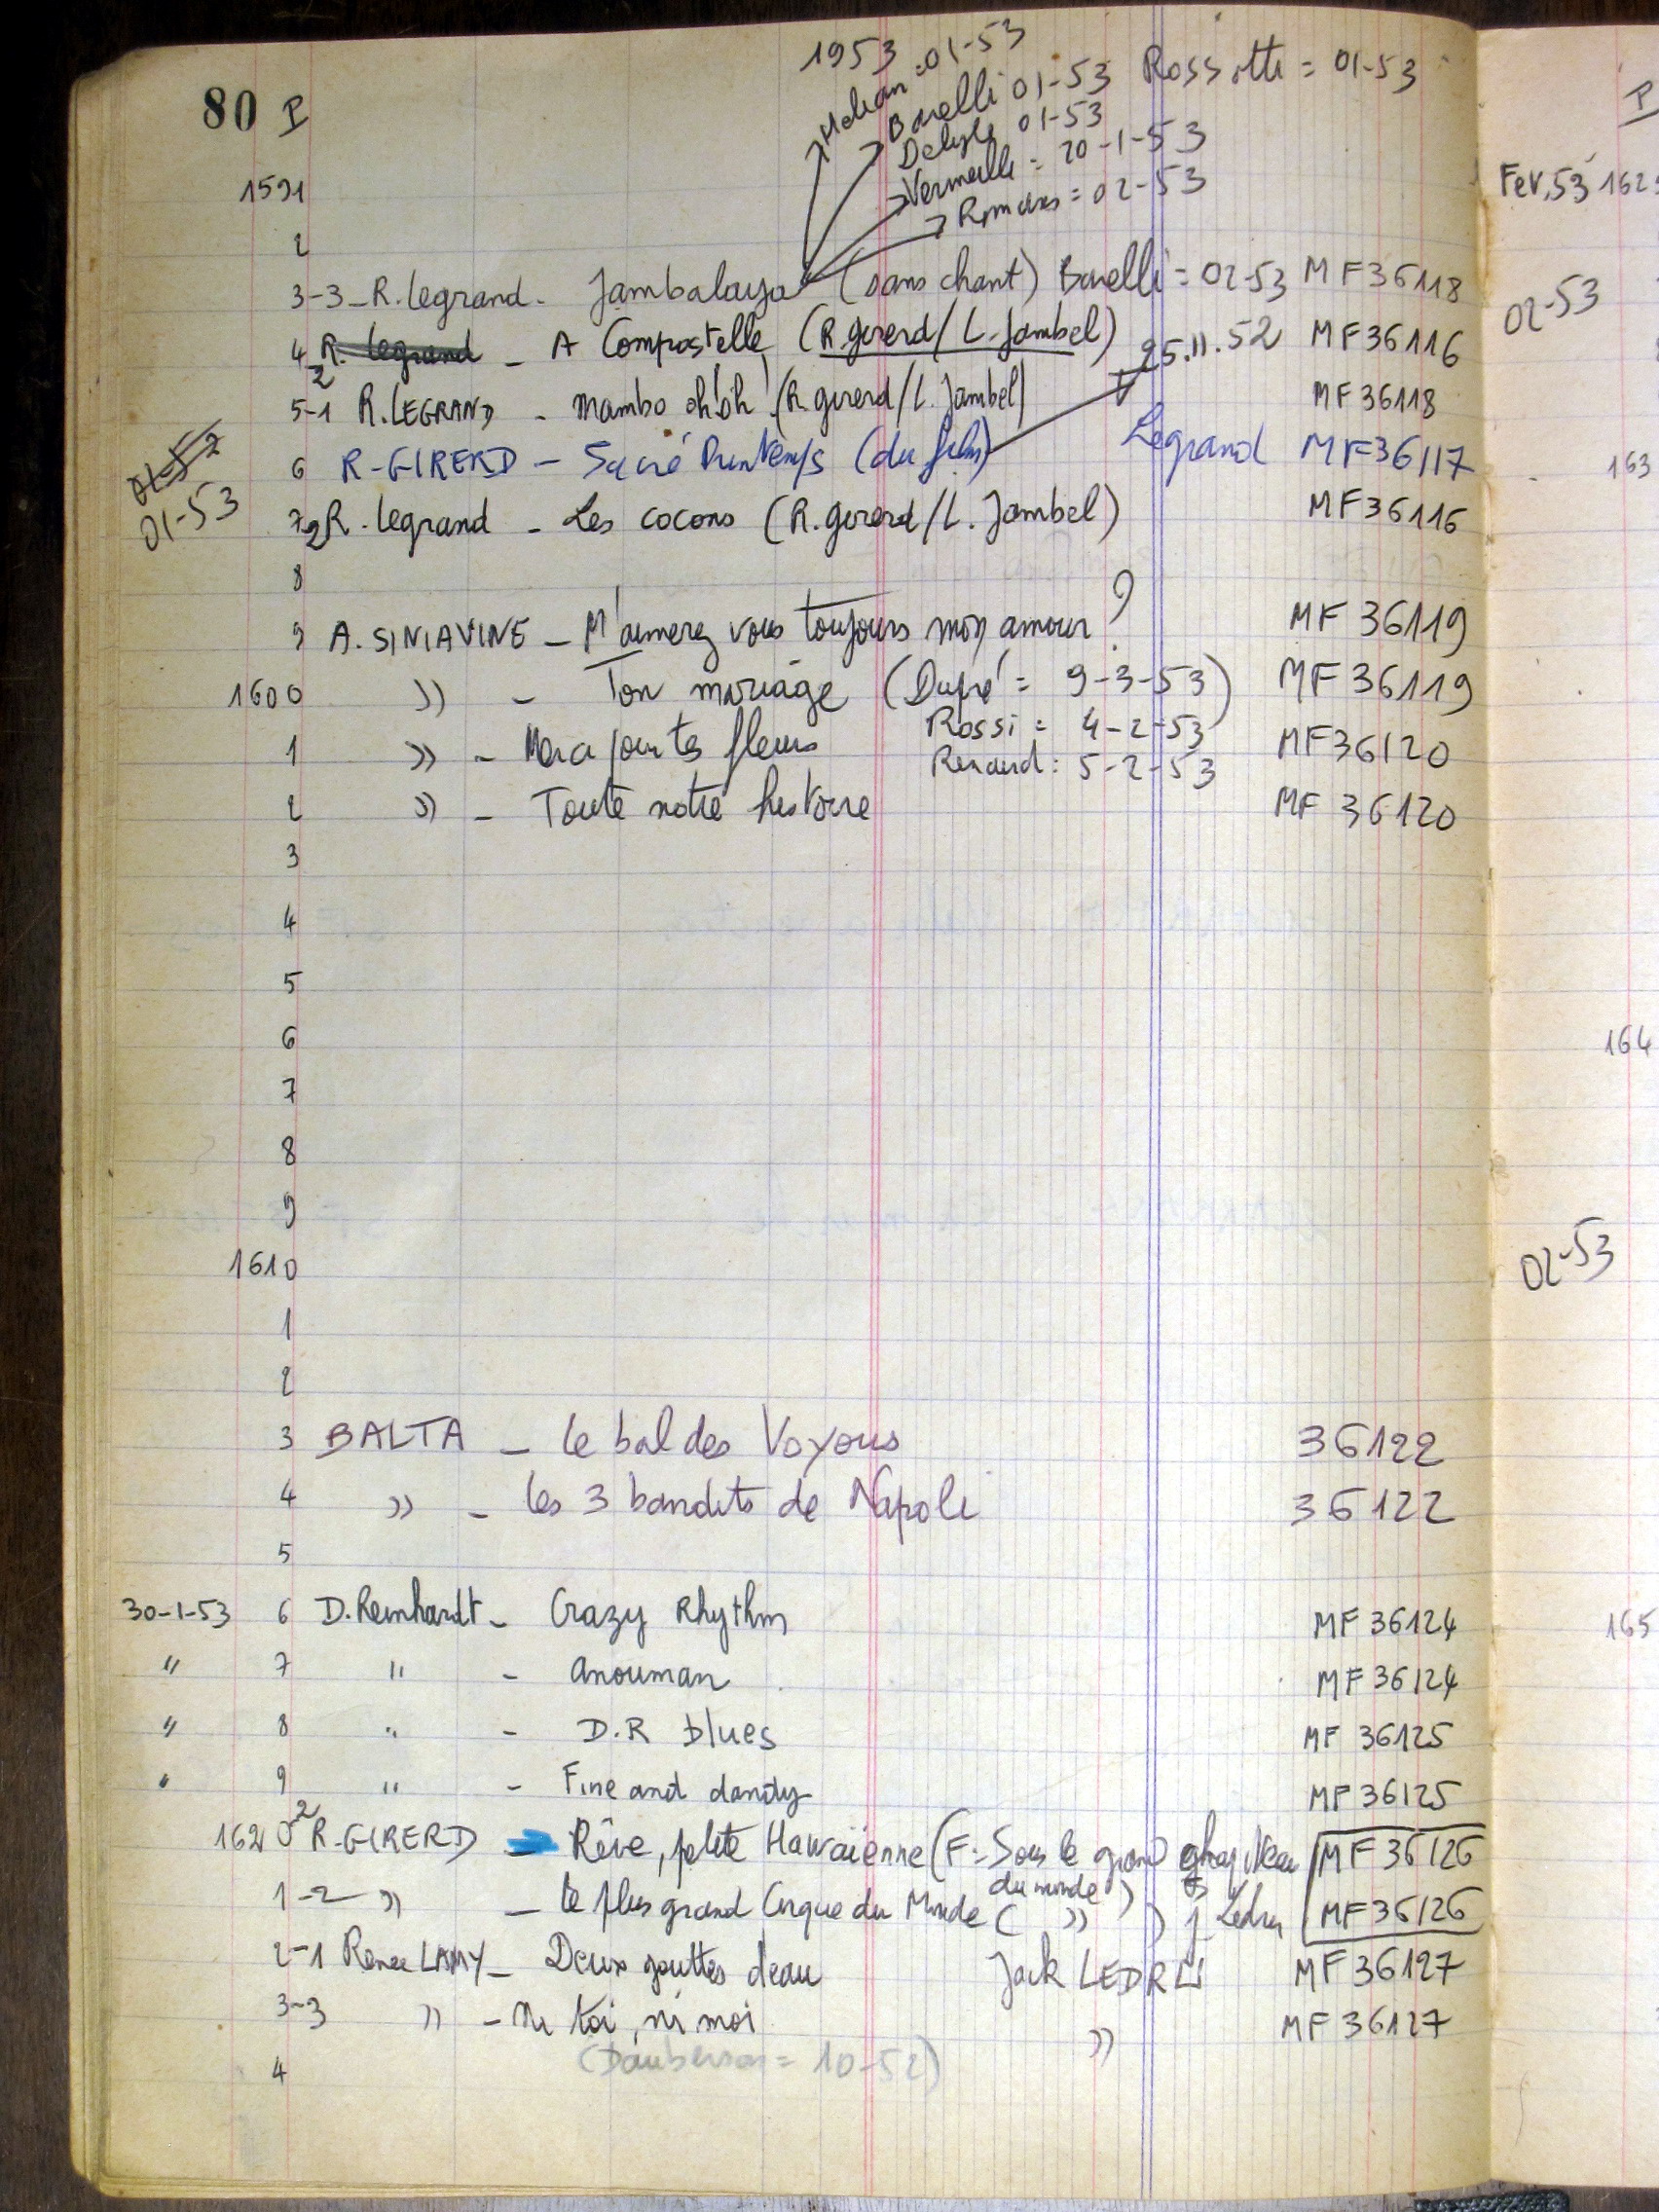 1953
80 P
Mehan = 01-53
Barelli 01-53 Rossotti = 01-53
Delyle 01-53
1591
Vermeille = 20-1-53
2
Romans = 02-53
3-3 - R. Legrand - Jambalaya (sans chant) Barelli = 02-53 MF36118
4 R. Legrand - A Compostelle (R. girerd / L. Jambel) MF36116
2 25.11.52
5-1 R. LEGRAND - Mambo oh! oh! (R. girerd / L. Jambel) MF36118
01-52
6 R-GIRERD - Sacré Printemps (du film) Legrand MF36117
01-53
7 2 R. Legrand - Les cocons (R. girerd / L. Jambel) MF36116
8
9 A. SINIAVINE - M'aimerez vous toujours mon amour ? MF 36119
1600 » - Ton mariage (Dupré = 9-3-53) MF 36119
Rossi = 4-2-53
1 » - Merci pour tes fleurs MF36120
Renaud : 5-2-53
2 » - Toute notre histoire MF 36120
3
4
5
6
7
8
9
1610
1
2
3 BALTA - Le bal des Voyous 36122
4 » - Les 3 bandits de Napoli 36122
5
30-1-53 6 D. Reinhardt - Crazy Rhythm MF 36124
" 7 " - Anouman MF 36124
" 8 " - D.R blues MF 36125
" 9 " - Fine and dandy MF 36125
1620 2 R-GIRERD - Rêve, petite Hawaïenne (F: Sous le grand chapiteau MF 36126
du monde)
1-2 » - Le plus grand Cirque du Monde ( » ) J. Ledru MF36126
2-1 Renee LAMY - Deux gouttes d'eau Jack LEDRU MF 36127
3-3 » - Ni toi, ni moi » MF 36127
(Dauberson = 10-52)
4
P
Fev.53 162
02-53
163
164
02-53
165